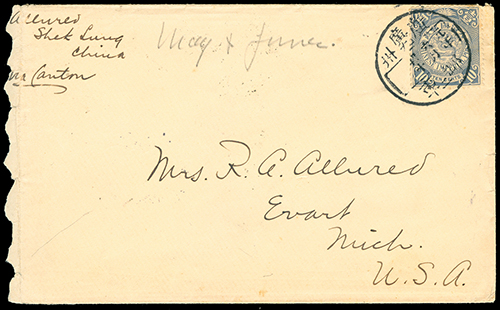 Allured
Shek Lung
China
via Canton
May & June.
廣
州
Mrs. R. A. Allured
Evart
Mich.
U.S.A.